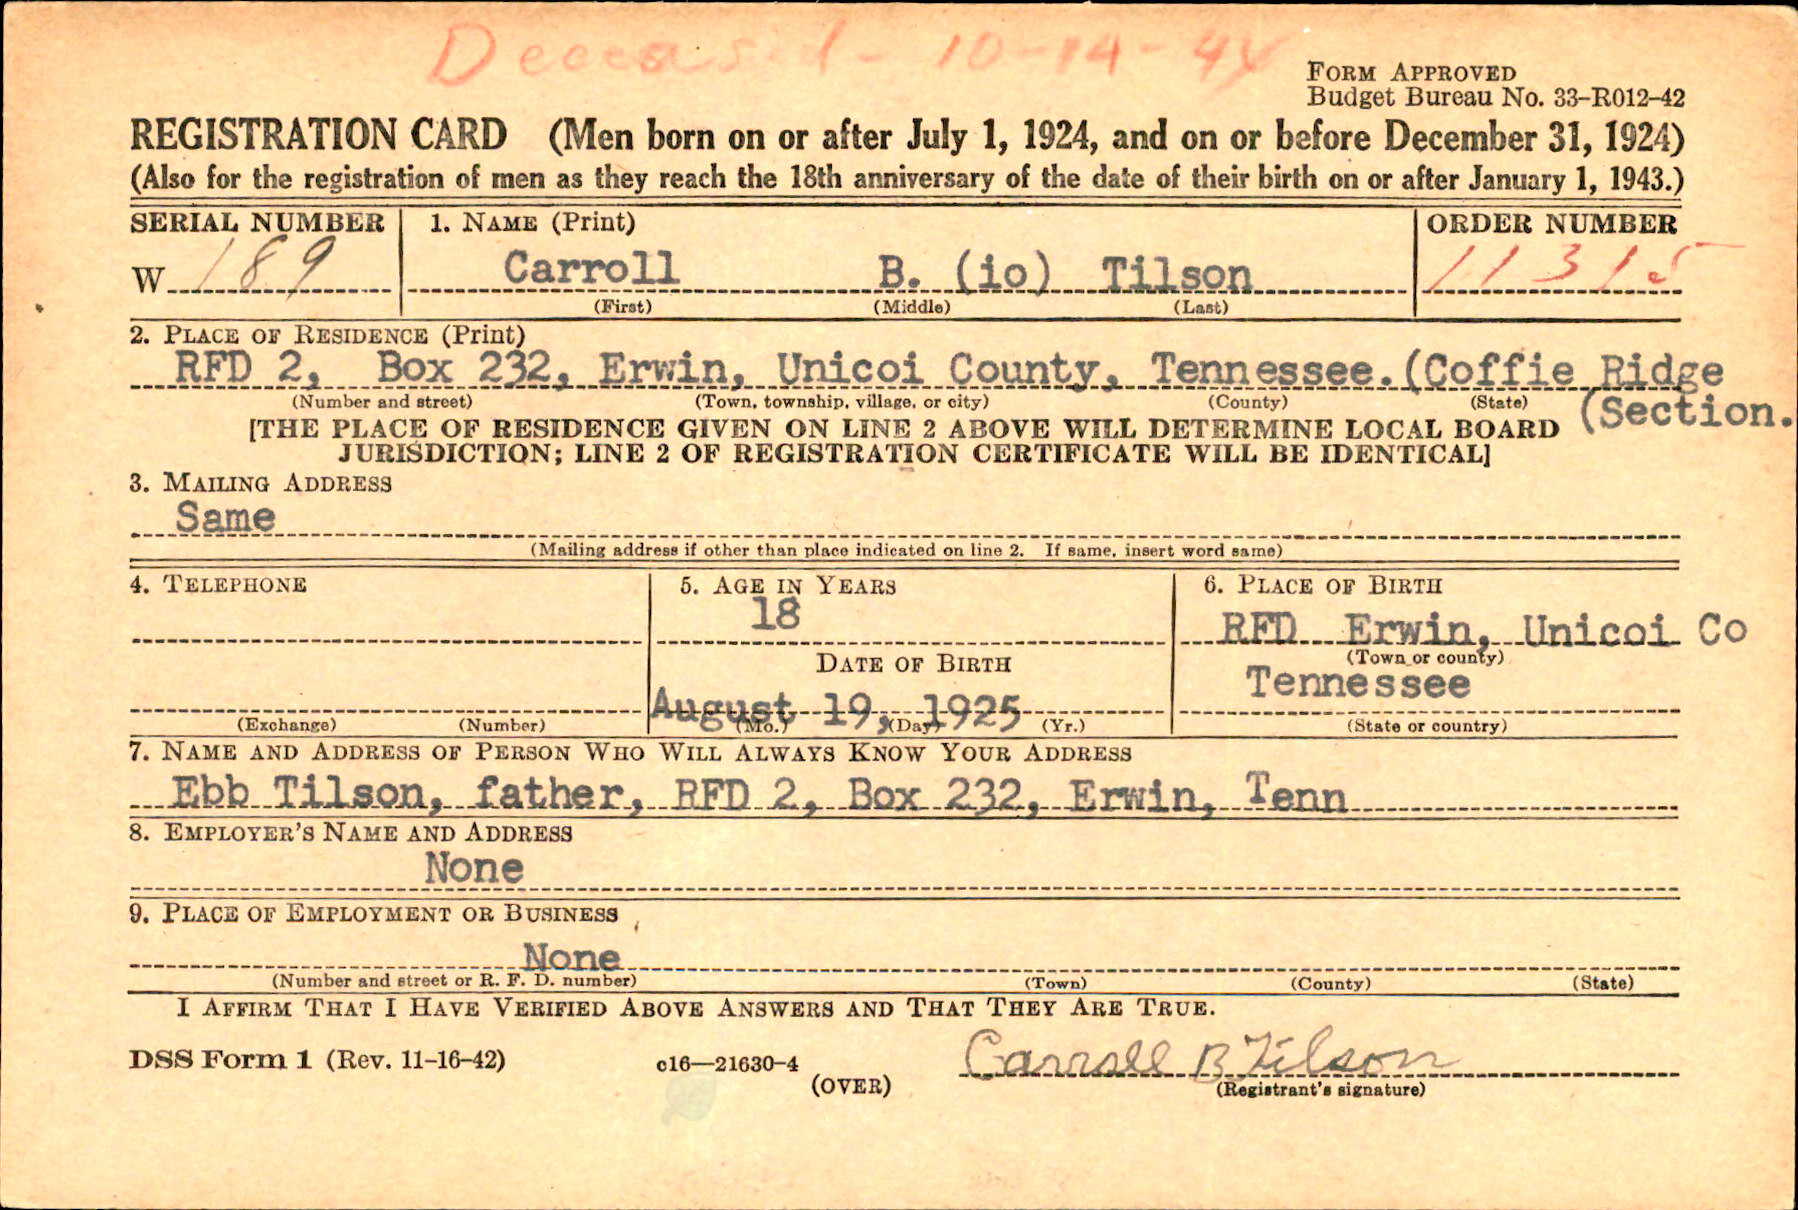 Deceased - 10-14-44
FORM APPROVED
Budget Bureau No. 33-R012-42
REGISTRATION CARD (Men born on or after July 1, 1924, and on or before December 31, 1924)
(Also for the registration of men as they reach the 18th anniversary of the date of their birth on or after January 1, 1943.)
SERIAL NUMBER 1. NAME (Print) ORDER NUMBER
W 189 Carroll B. (io) Tilson 11315
(First) (Middle) (Last)
2. PLACE OF RESIDENCE (Print)
RFD 2, Box 232, Erwin, Unicoi County, Tennessee. (Coffie Ridge
(Number and street) (Town, township, village, or city) (County) (State) (Section.
[THE PLACE OF RESIDENCE GIVEN ON LINE 2 ABOVE WILL DETERMINE LOCAL BOARD
JURISDICTION; LINE 2 OF REGISTRATION CERTIFICATE WILL BE IDENTICAL]
3. MAILING ADDRESS
Same
(Mailing address if other than place indicated on line 2. If same, insert word same)
4. TELEPHONE 5. AGE IN YEARS 6. PLACE OF BIRTH
18
RFD Erwin, Unicoi Co
DATE OF BIRTH (Town or county)
Tennessee
August 19, 1925
(Exchange) (Number) (Mo.) (Day) (Yr.) (State or country)
7. NAME AND ADDRESS OF PERSON WHO WILL ALWAYS KNOW YOUR ADDRESS
Ebb Tilson, father, RFD 2, Box 232, Erwin, Tenn
8. EMPLOYER'S NAME AND ADDRESS
None
9. PLACE OF EMPLOYMENT OR BUSINESS
None
(Number and street or R. F. D. number) (Town) (County) (State)
I AFFIRM THAT I HAVE VERIFIED ABOVE ANSWERS AND THAT THEY ARE TRUE.
DSS Form 1 (Rev. 11-16-42) c16—21630-4 Carroll B Tilson
(OVER) (Registrant's signature)